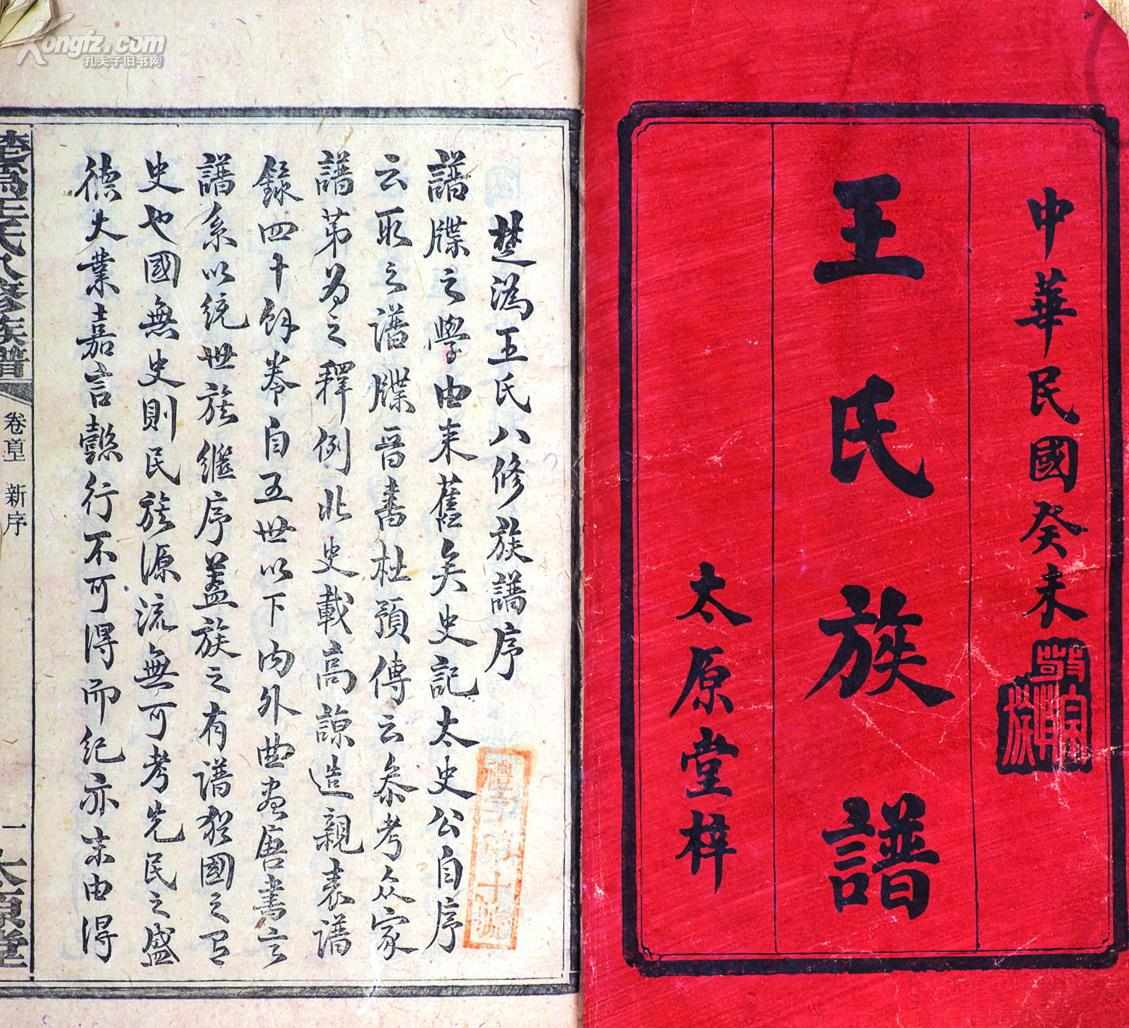 中華民國癸未
敬宗睦族
王氏族譜
太原堂梓
楚溈王氏八修族譜序
譜牒之學由来舊矣史記太史公自序
云取之譜牒晉書杜預傳云叅考众家
譜第為之釋例北史載高諒造親表譜
錄四十餘卷自五世以下内外曲盡唐書言
譜系以統世族繼序蓋族之有譜猶國之有
史也國無史則民族源流無可考先民之盛
德大業嘉言懿行不可得而紀亦末由得
楚溈王氏八修族譜
卷首 新序
一 太原堂
Kongfz.com
孔夫子旧书网